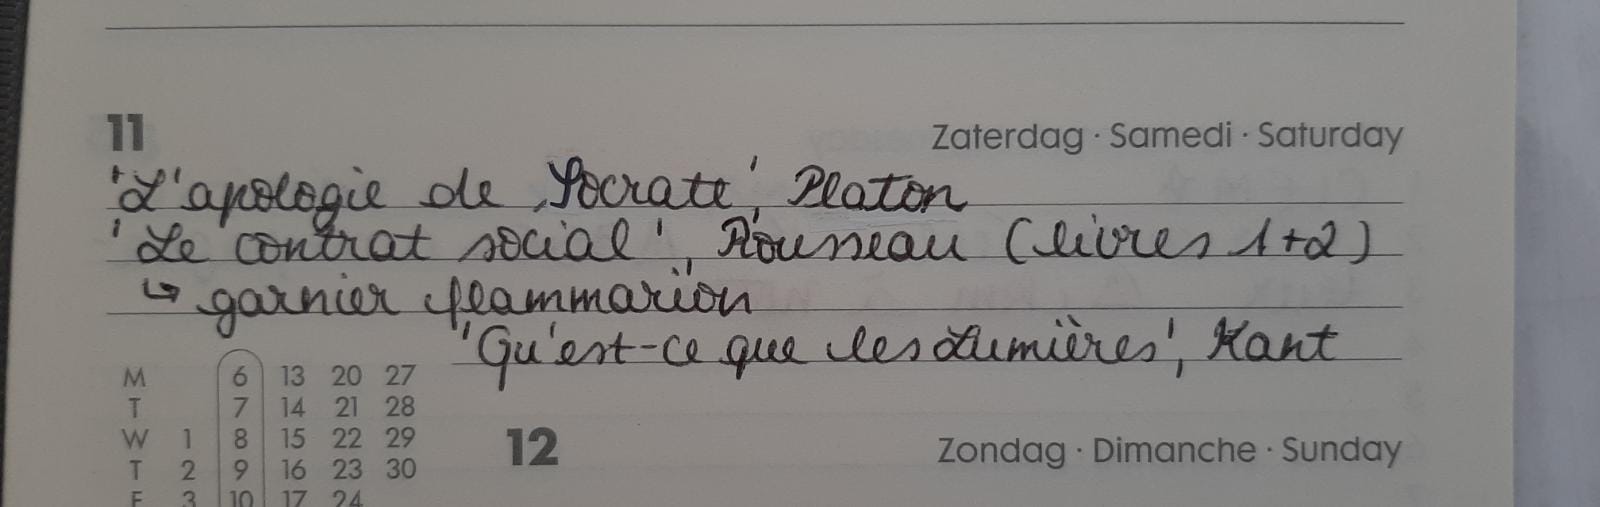 11 Zaterdag · Samedi · Saturday
'L'apologie de Socrate', Platon
'Le contrat social', Rousseau (livres 1+2)
↳ garnier flammarion
'Qu'est-ce que les Lumières', Kant
M 6 13 20 27
T 7 14 21 28
W 1 8 15 22 29
12 Zondag · Dimanche · Sunday
T 2 9 16 23 30
F 3 10 17 24